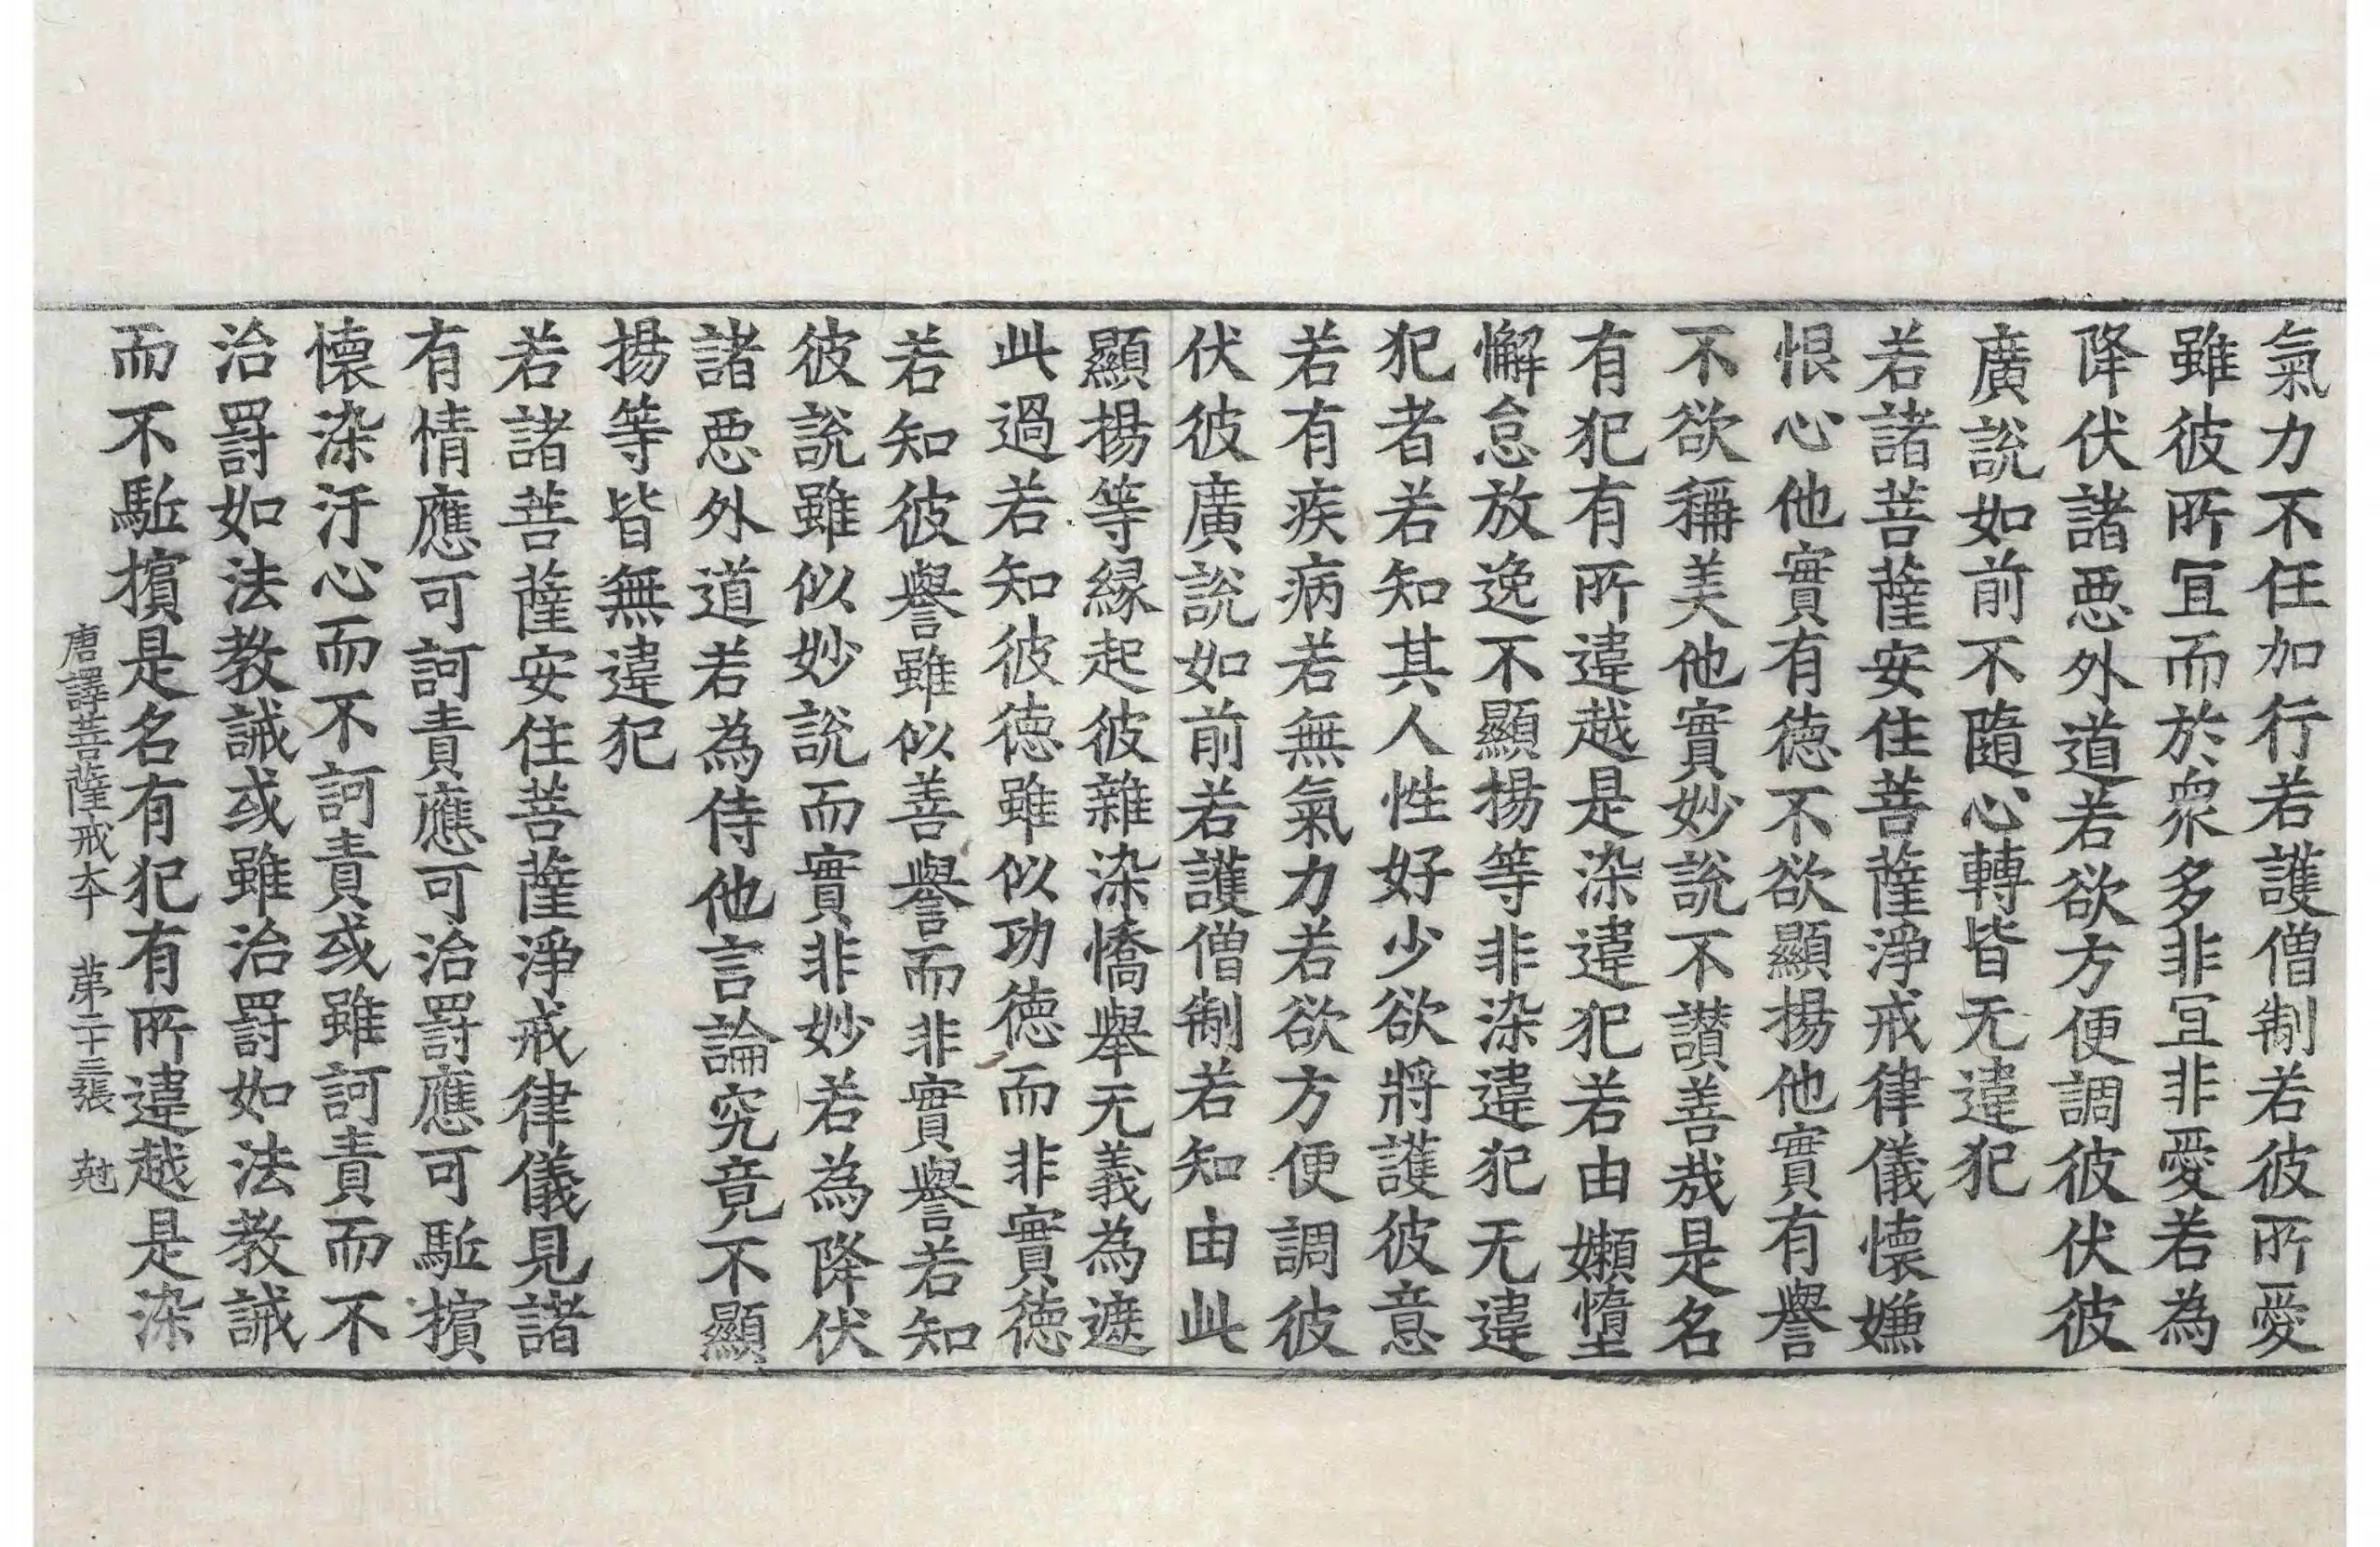 氣力不任加行若護僧制若彼所愛
雖彼所宜而於衆多非宜非愛若為
降伏諸惡外道若欲方便調彼伏彼
廣說如前不隨心轉皆无違犯
若諸菩薩安住菩薩淨戒律儀懷嫌
恨心他實有德不欲顯揚他實有譽
不欲稱美他實妙說不讃善哉是名
有犯有所違越是染違犯若由嬾墮
懈怠放逸不顯揚等非染違犯无違
犯者若知其人性好少欲將護彼意
若有疾病若無氣力若欲方便調彼
伏彼廣說如前若護僧制若知由此
顯揚等緣起彼雜染憍舉无義為遮
此過若知彼德雖似功德而非實德
若知彼譽雖似善譽而非實譽若知
彼說雖似妙說而實非妙若為降伏
諸惡外道若為侍他言論究竟不顯
揚等皆無違犯
若諸菩薩安住菩薩淨戒律儀見諸
有情應可訶責應可治罸應可駈擯
懷染汙心而不訶責或雖訶責而不
治罸如法教誡或雖治罸如法教誡
而不駈擯是名有犯有所違越是染
唐譯菩薩戒本 第二十三張 尅